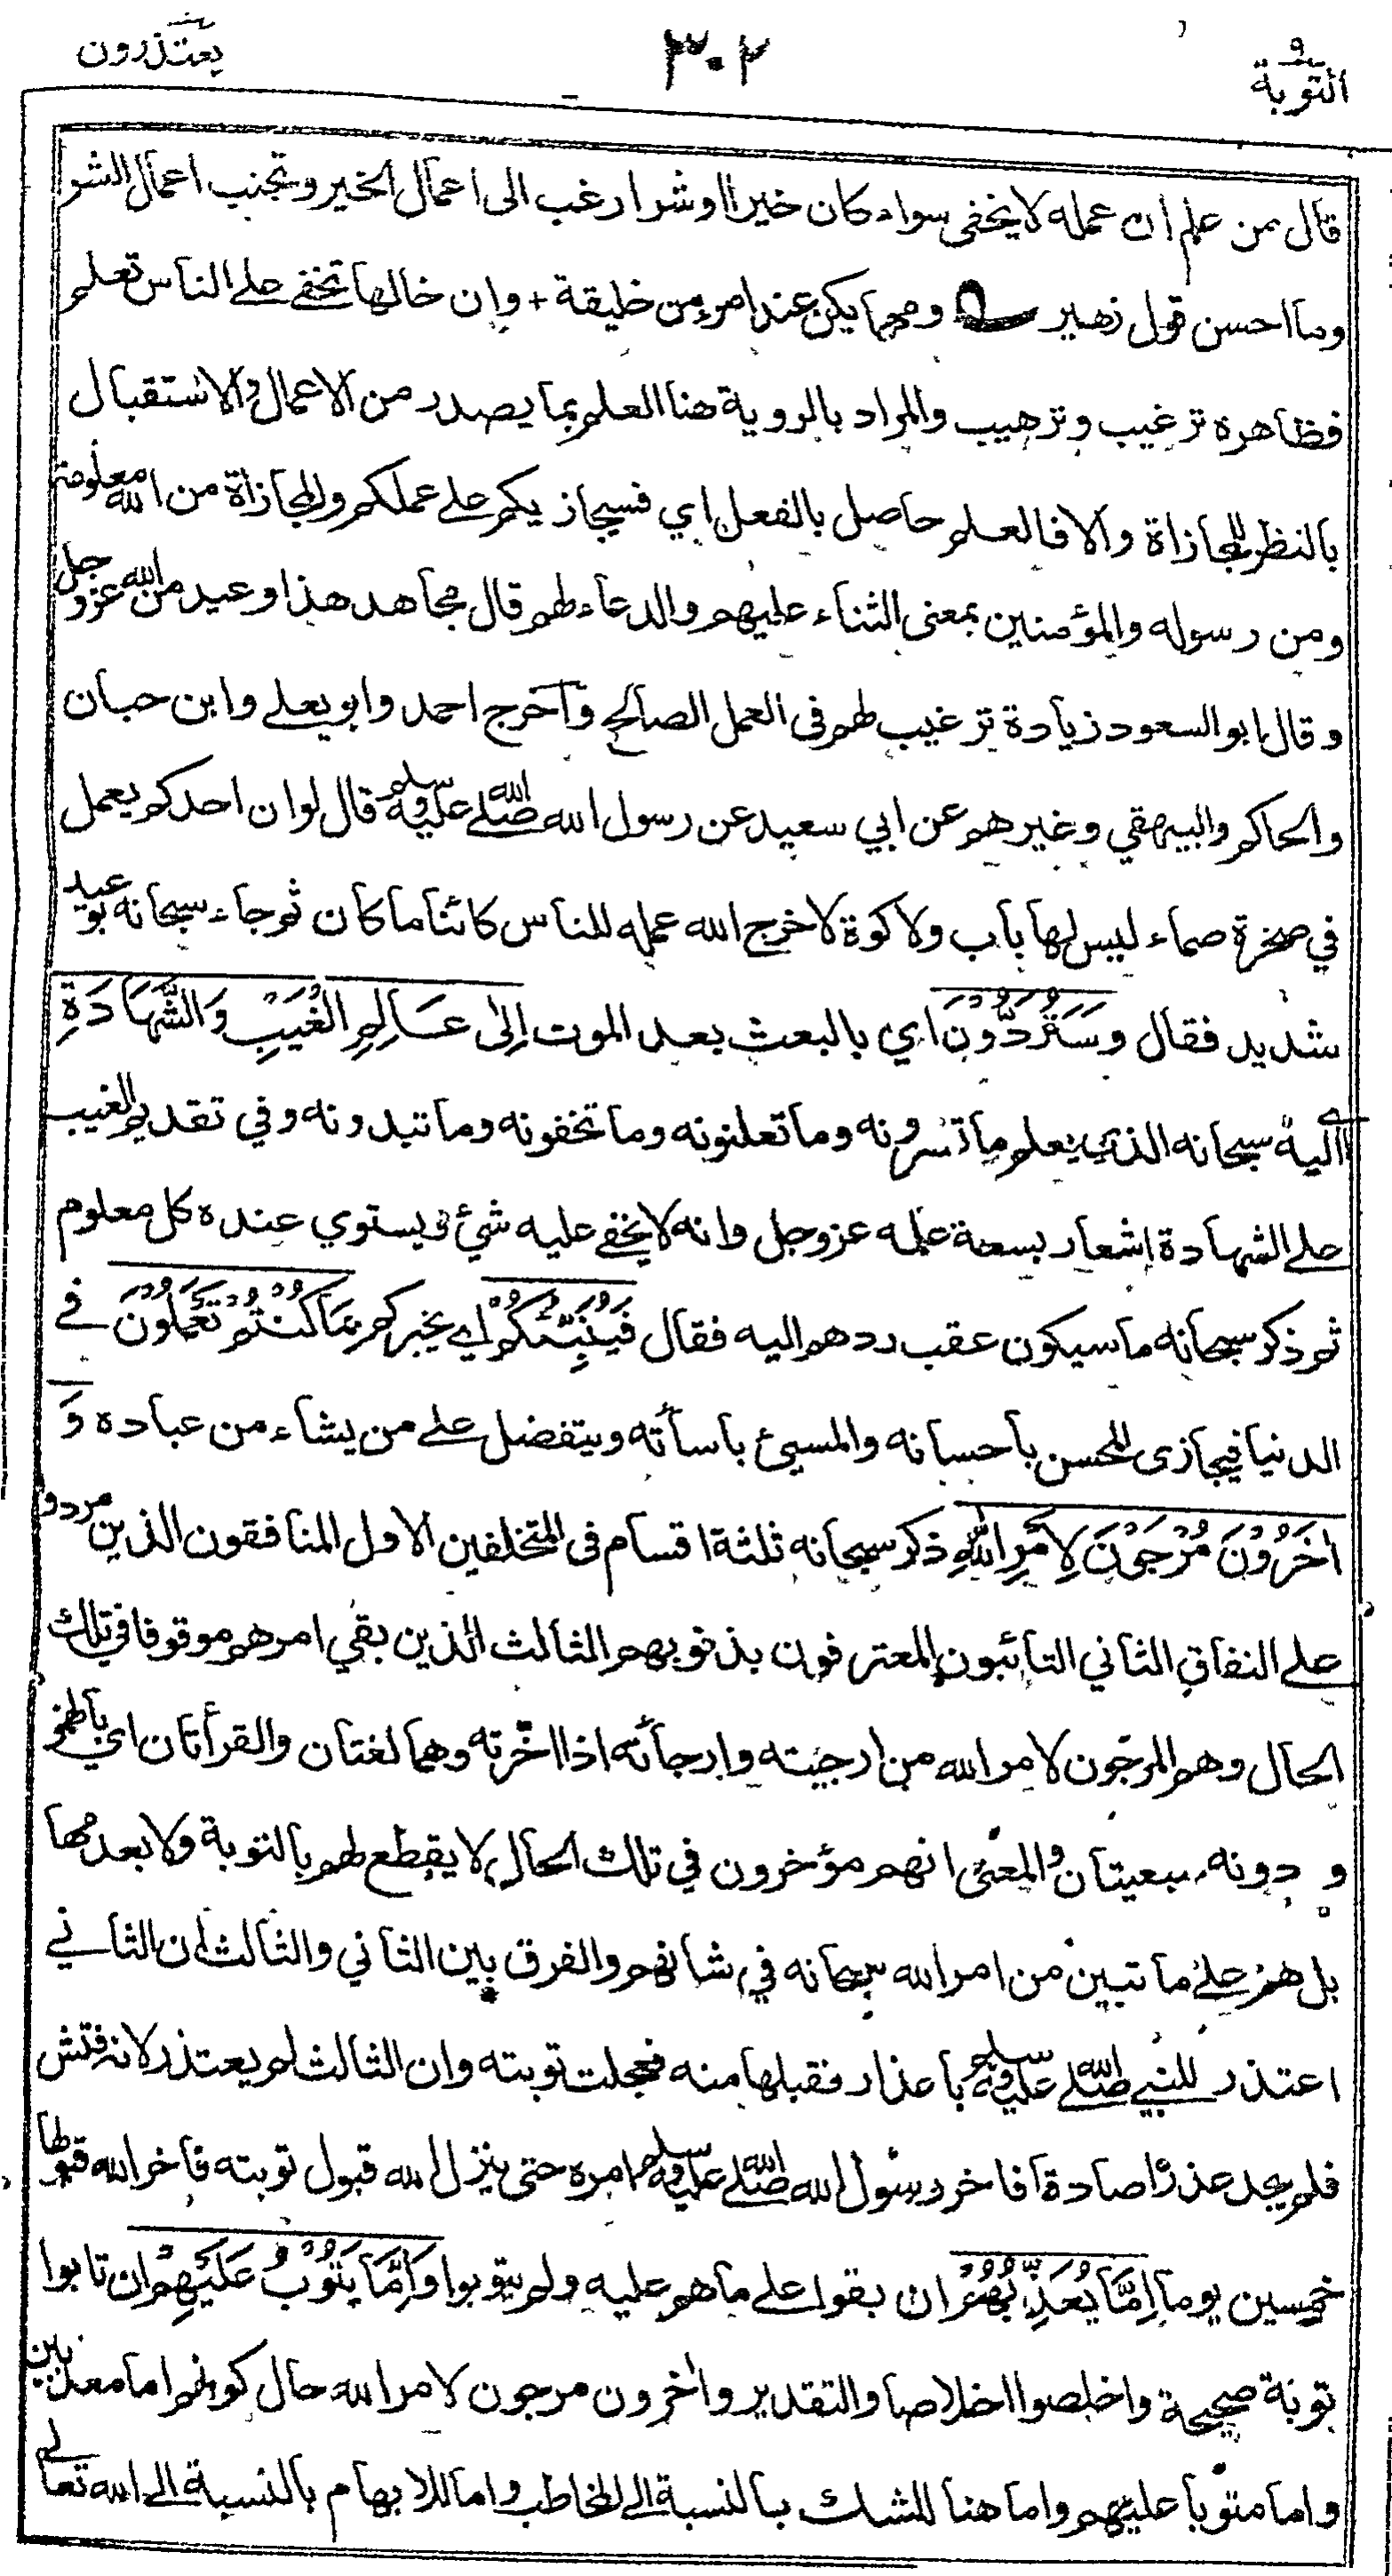 ٩
التوبة
٣٠٢
يعتذرون
قال من علم ان عمله لا يخفى سواء كان خيرا او شرا رغب الى اعمال الخير وتجنب اعمال الشر
وما احسن قول زهير ومهما يكن عند امرء من خليقة + وان خالها تخفى على الناس تعلم
فظاهره ترغيب وترهيب والمراد بالروية هنا العلم بما يصدر من الاعمال والاستقبال
بالنظر للمجازاة والا فالعلم حاصل بالفعل اي فسيجازيكم على عملكم والمجازاة من الله معلومة
ومن رسوله والمؤمنين بمعنى الثناء عليهم والدعاء لهم قال مجاهد هذا وعيد من الله عزوجل
وقال ابو السعود زيادة ترغيب لهم فى العمل الصالح وآخرج احمد وابو يعلى وابن حبان
والحاكم والبيهقي وغيرهم عن ابي سعيد عن رسول الله صلى الله عليه وسلم قال لو ان احدكم يعمل
في صخرة صماء ليس لها باب ولا كوة لاخرج الله عمله للناس كائنا ما كان ثم جاء سبحانه بوعيد
شديد فقال وَسَتُرَدُّونَ اي بالبعث بعد الموت اِلٰى عَالِمِ الْغَيْبِ وَالشَّهَادَةِ
اي اليه سبحانه الذي يعلم ما تسرونه وما تعلنونه وما تخفونه وما تبدونه وفي تقديم الغيب
على الشهادة اشعار بسعة علمه عزوجل وانه لا يخفى عليه شئ ويستوي عنده كل معلوم
ثم ذكر سبحانه ما سيكون عقب ردهم اليه فقال فَيُنَبِّئُكُمْ اي يخبركم بِمَا كُنْتُمْ تَعْمَلُونَ فى
الدنيا فيجازى المحسن باحسانه والمسيئ باسأته ويتفضل على من يشاء من عباده وَ
اٰخَرُوْنَ مُرْجَوْنَ لِاَمْرِ اللّٰهِ ذكر سبحانه ثلثة اقسام فى المتخلفين الاول المنافقون الذين مردوا
على النفاق الثاني التائبون المعترفون بذنوبهم الثالث الذين بقي امرهم موقوفا في تلك
الحال وهم المرجون لامر الله من ارجيته وارجأته اذا اخّرته وهما لغتان والقرأتان اي بالهمز
ودونه سبعيتان والمعنى انهم مؤخرون في تلك الحال لا يقطع لهم بالتوبة ولا بعدمها
بل هم على ما تبين من امر الله سبحانه في شانهم والفرق بين الثاني والثالث ان الثاني
اعتذر للنبي صلى الله عليه وسلم باعذار فقبلها منه فعجلت توبته وان الثالث لم يعتذر لانه فتش
فلم يجد عذرا صادقا فاخر رسول الله صلى الله عليه وسلم امره حتى ينزل الله قبول توبته فاخر الله قبولها
خمسين يوما اِمَّا يُعَذِّبُهُمْ ان بقوا على ما هم عليه ولم يتوبوا وَاِمَّا يَتُوْبُ عَلَيْهِمْ ان تابوا
توبة صحيحة واخلصوا اخلاصا والتقدير واٰخرون مرجون لامر الله حال كونهم اما معذبين
واما متوبا عليهم واما هنا للشك بالنسبة الى المخاطب واما للابهام بالنسبة الى الله تعالى